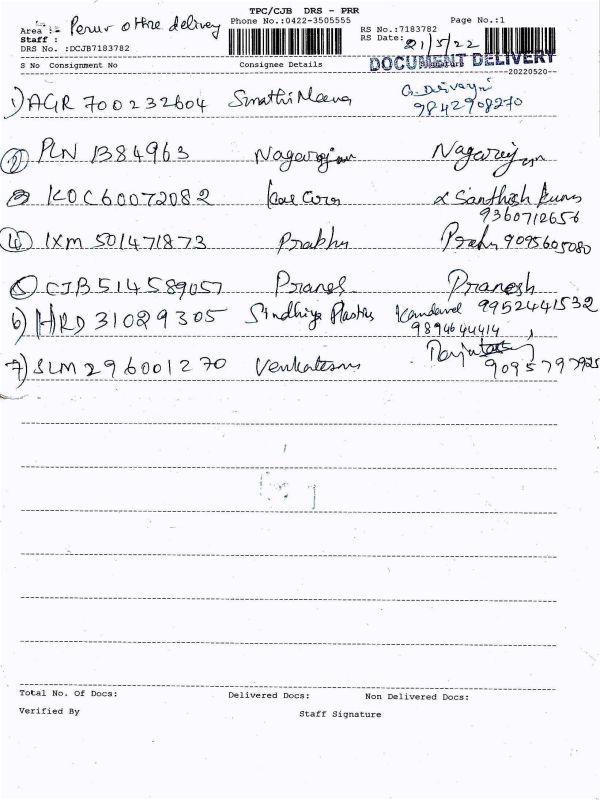 TPC/CJB DRS - PRR
Area :- Perur office delivery
Phone No.:0422-3505555
Page No.:1
Staff :
RS No.:7183782
DRS No. :DCJB7183782
RS Date: 21/5/22
DOCUMENT DELIVERY
S No Consignment No Consignee Details
--20220520--
1) AGR 700232604 G. Deivayni
9842908270
2) PLN 1384963 Nagarajan Nagarajan
3) KOC60072082 Santhosh Kumar
9360712656
4) IXM 501471873 Prabhu Prabhu 9095605080
5) CJB514589057 Pranesh Pranesh
6) HRD 31029305 Sindhiya Plastics Kandavel 9952441532
9894644414
7) SLM 296001270 Venkatesan
9095797925
Total No. Of Docs: Delivered Docs: Non Delivered Docs:
Verified By Staff Signature